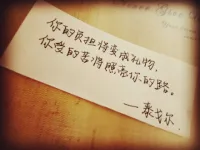 你的负担将变成礼物，
你受的苦将照亮你的路。
——泰戈尔